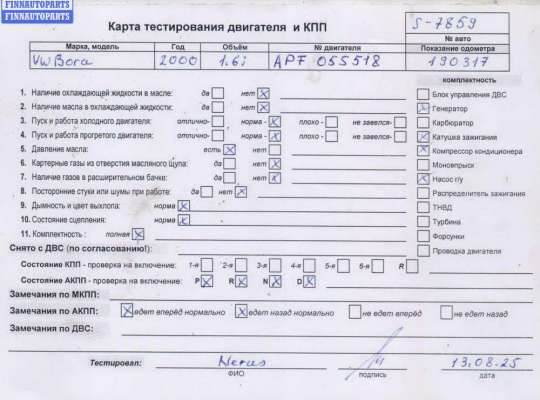 FINNAUTOPARTS
FINNAUTOPARTS
Карта тестирования двигателя и КПП
S-7859
№ авто
Марка, модель Год Объём № двигателя Показание одометра
VW Bora 2000 1.6i APF 055518 190317
комплектность
1. Наличие охлаждающей жидкости в масле: да нет
Блок управления ДВС
2. Наличие масла в охлаждающей жидкости: да нет
Генератор
3. Пуск и работа холодного двигателя: отлично- норма - плохо - не завелся-
Карбюратор
4. Пуск и работа прогретого двигателя: отлично- норма - плохо - не завелся-
Катушка зажигания
5. Давление масла: есть нет
Компрессор кондиционера
6. Картерные газы из отверстия масляного щупа: да нет
Моновпрыск
7. Наличие газов в расширительном бачке: да нет
Насос г/у
8. Посторонние стуки или шумы при работе: да нет
Распределитель зажигания
9. Дымность и цвет выхлопа: норма
ТНВД
10. Состояние сцепления: норма
Турбина
11. Комплектность : полная
Форсунки
Снято с ДВС (по согласованию!):
Проводка двигателя
Состояние КПП - проверка на включение: 1-я 2-я 3-я 4-я 5-я 6-я R
Состояние АКПП - проверка на включение: P R N D
Замечания по МКПП:
Замечания по АКПП: едет вперёд нормально едет назад нормально не едет вперёд не едет назад
Замечания по ДВС:
Тестировал: 13.08.25
ФИО подпись дата